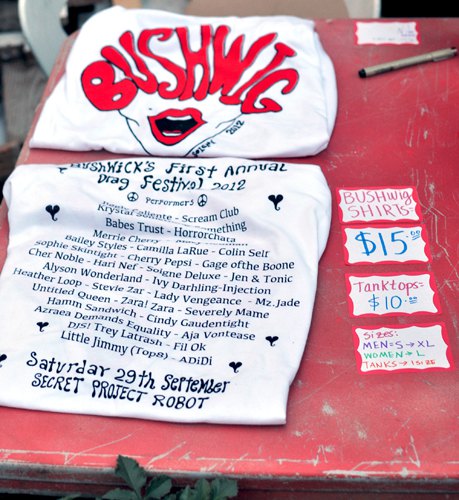 BUSHWIG
2012
BUSHWICK'S First Annual
Drag Festival 2012
Performers
Krystal - Scream Club
Babes Trust - Horrorchata
Merrie Cherry -
Bailey Styles - Camilla LaRue - Colin Self
Sophie Skintight - Cherry Pepsi - Gage of the Boone
Cher Noble - Hari Nef - Soigne Deluxe - Jen & Tonic
Alyson Wonderland - Ivy Darhling-Injection
Heather Loop - Stevie Zar - Lady Vengeance - Mz. Jade
Untitled Queen - Zara! Zara - Severely Mame
Hamm Sandwich - Cindy Gaudentight
Azraea Demands Equality - Aja Vontease
DJS! Trey Latrash - Fil Ok
Little Jimmy (Tops) - ADiDi
Saturday 29th September
SECRET PROJECT ROBOT
BUSHWig
SHIRTS
$15.00
Tanktops=
$10.00
Sizes:
MEN=S→XL
WOMEN→L
TANKS→1SIZE